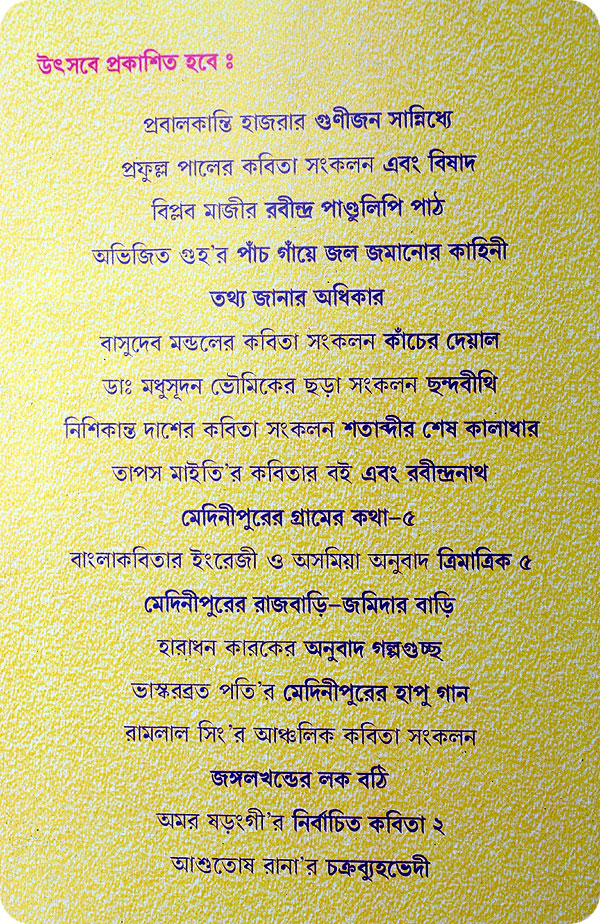 উৎসবে প্রকাশিত হবে ঃ
প্রবালকান্তি হাজরার গুণীজন সান্নিধ্যে
প্রফুল্ল পালের কবিতা সংকলন এবং বিষাদ
বিপ্লব মাজীর রবীন্দ্র পাণ্ডুলিপি পাঠ
অভিজিত গুহ'র পাঁচ গাঁয়ে জল জমানোর কাহিনী
তথ্য জানার অধিকার
বাসুদেব মন্ডলের কবিতা সংকলন কাঁচের দেয়াল
ডাঃ মধুসূদন ভৌমিকের ছড়া সংকলন ছন্দবীথি
নিশিকান্ত দাশের কবিতা সংকলন শতাব্দীর শেষ কালাধার
তাপস মাইতি'র কবিতার বই এবং রবীন্দ্রনাথ
মেদিনীপুরের গ্রামের কথা-৫
বাংলাকবিতার ইংরেজী ও অসমিয়া অনুবাদ ত্রিমাত্রিক ৫
মেদিনীপুরের রাজবাড়ি-জমিদার বাড়ি
হারাধন কারকের অনুবাদ গল্পগুচ্ছ
ভাস্করব্রত পতি'র মেদিনীপুরের হাপু গান
রামলাল সিং'র আঞ্চলিক কবিতা সংকলন
জঙ্গলখন্ডের লক বঠি
অমর ষড়ংগী'র নির্বাচিত কবিতা ২
আশুতোষ রানা'র চক্রব্যুহভেদী